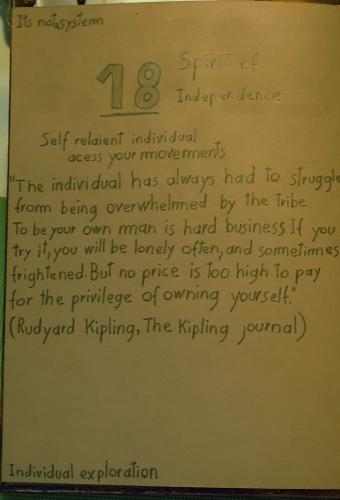 Its not a system
18
Spirit of
Independence
Self relaient individual
acess your movements
"The individual has always had to struggle
from being overwhelmed by the tribe.
To be your own man is hard business If you
try it, you will be lonely often, and sometimes
frightened. But no price is too high to pay
for the privilege of owning yourself."
(Rudyard Kipling, The Kipling journal)
Individual exploration